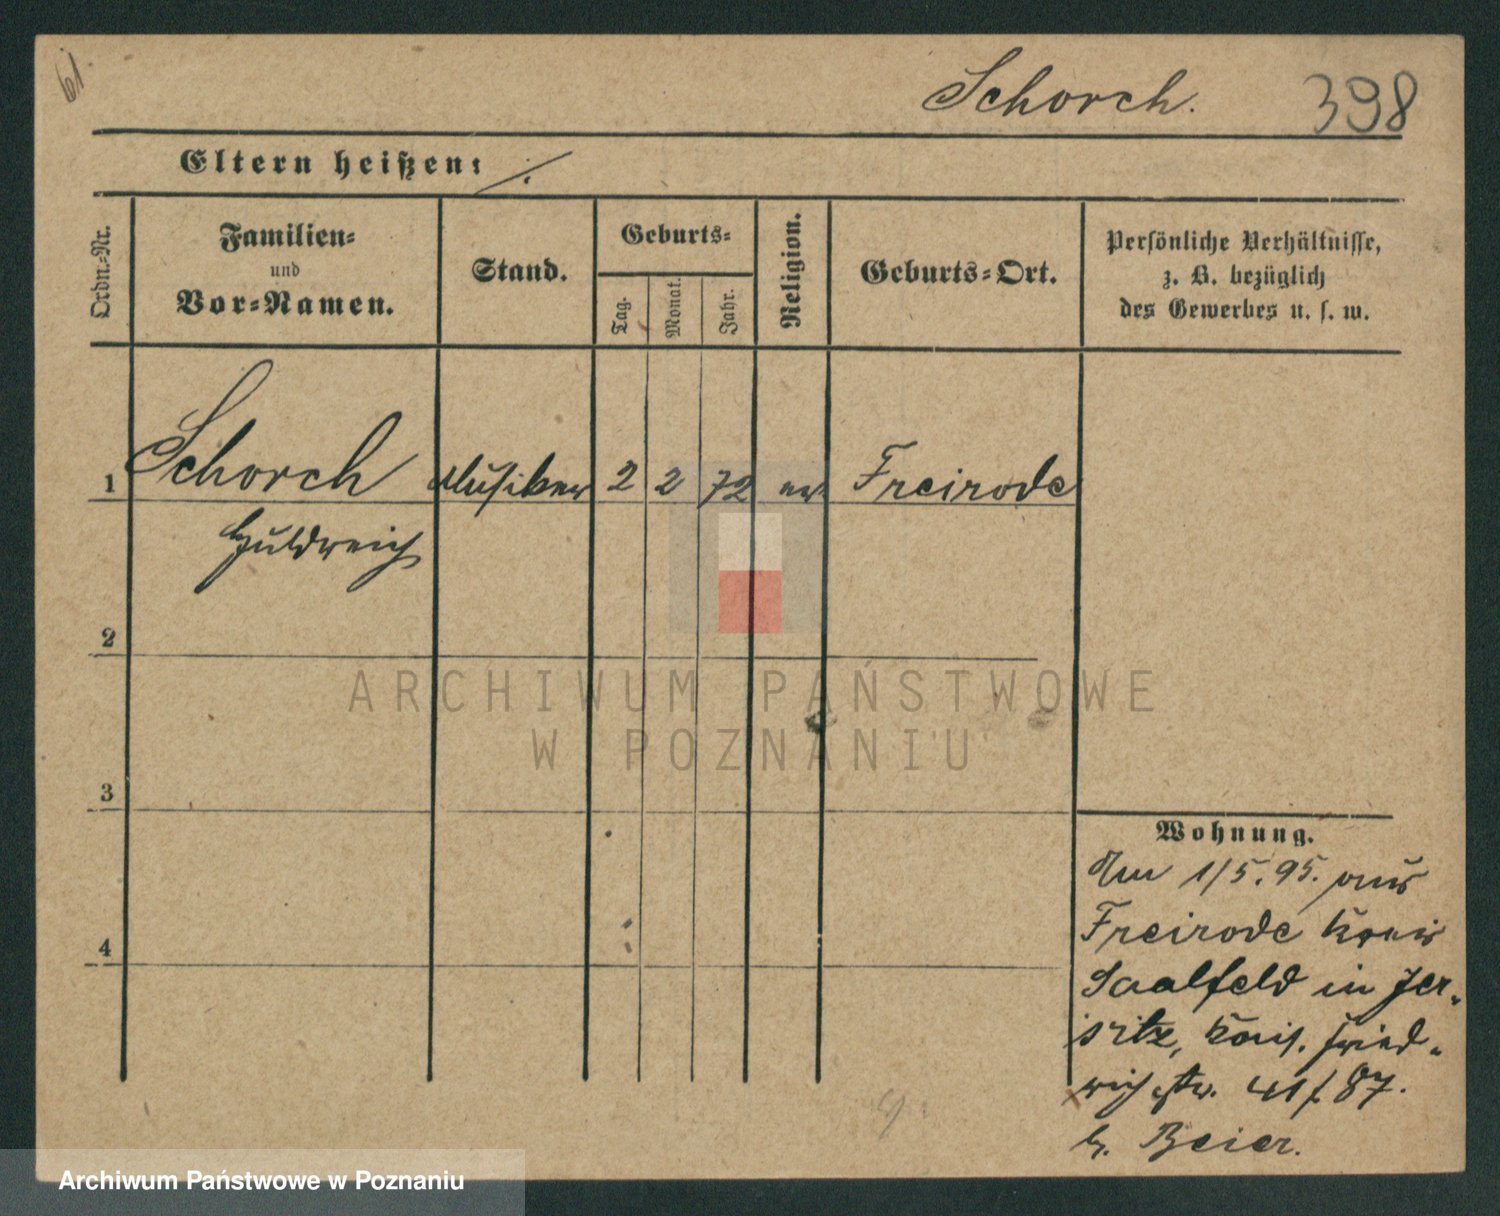 61.
Schorch.
398
Eltern heißen: ./.
Ordn.-Nr.
Familien-
und
Vor-Namen.
Stand.
Geburts-
Tag.
Monat.
Jahr.
Religion.
Geburts-Ort.
Persönliche Verhältnisse,
z. B. bezüglich
des Gewerbes u. s. w.
1 Schorch Musiker 2 2 72 ev. Freirode
Huldreich
2
3
4
Wohnung.
Am 1/5. 95. aus
Freirode Kreis
Saalfeld in Jer-
sitz, Kais. Fried-
rich str. 41/87.
b. Beier.
ARCHIWUM PAŃSTWOWE
W POZNANIU
Archiwum Państwowe w Poznaniu